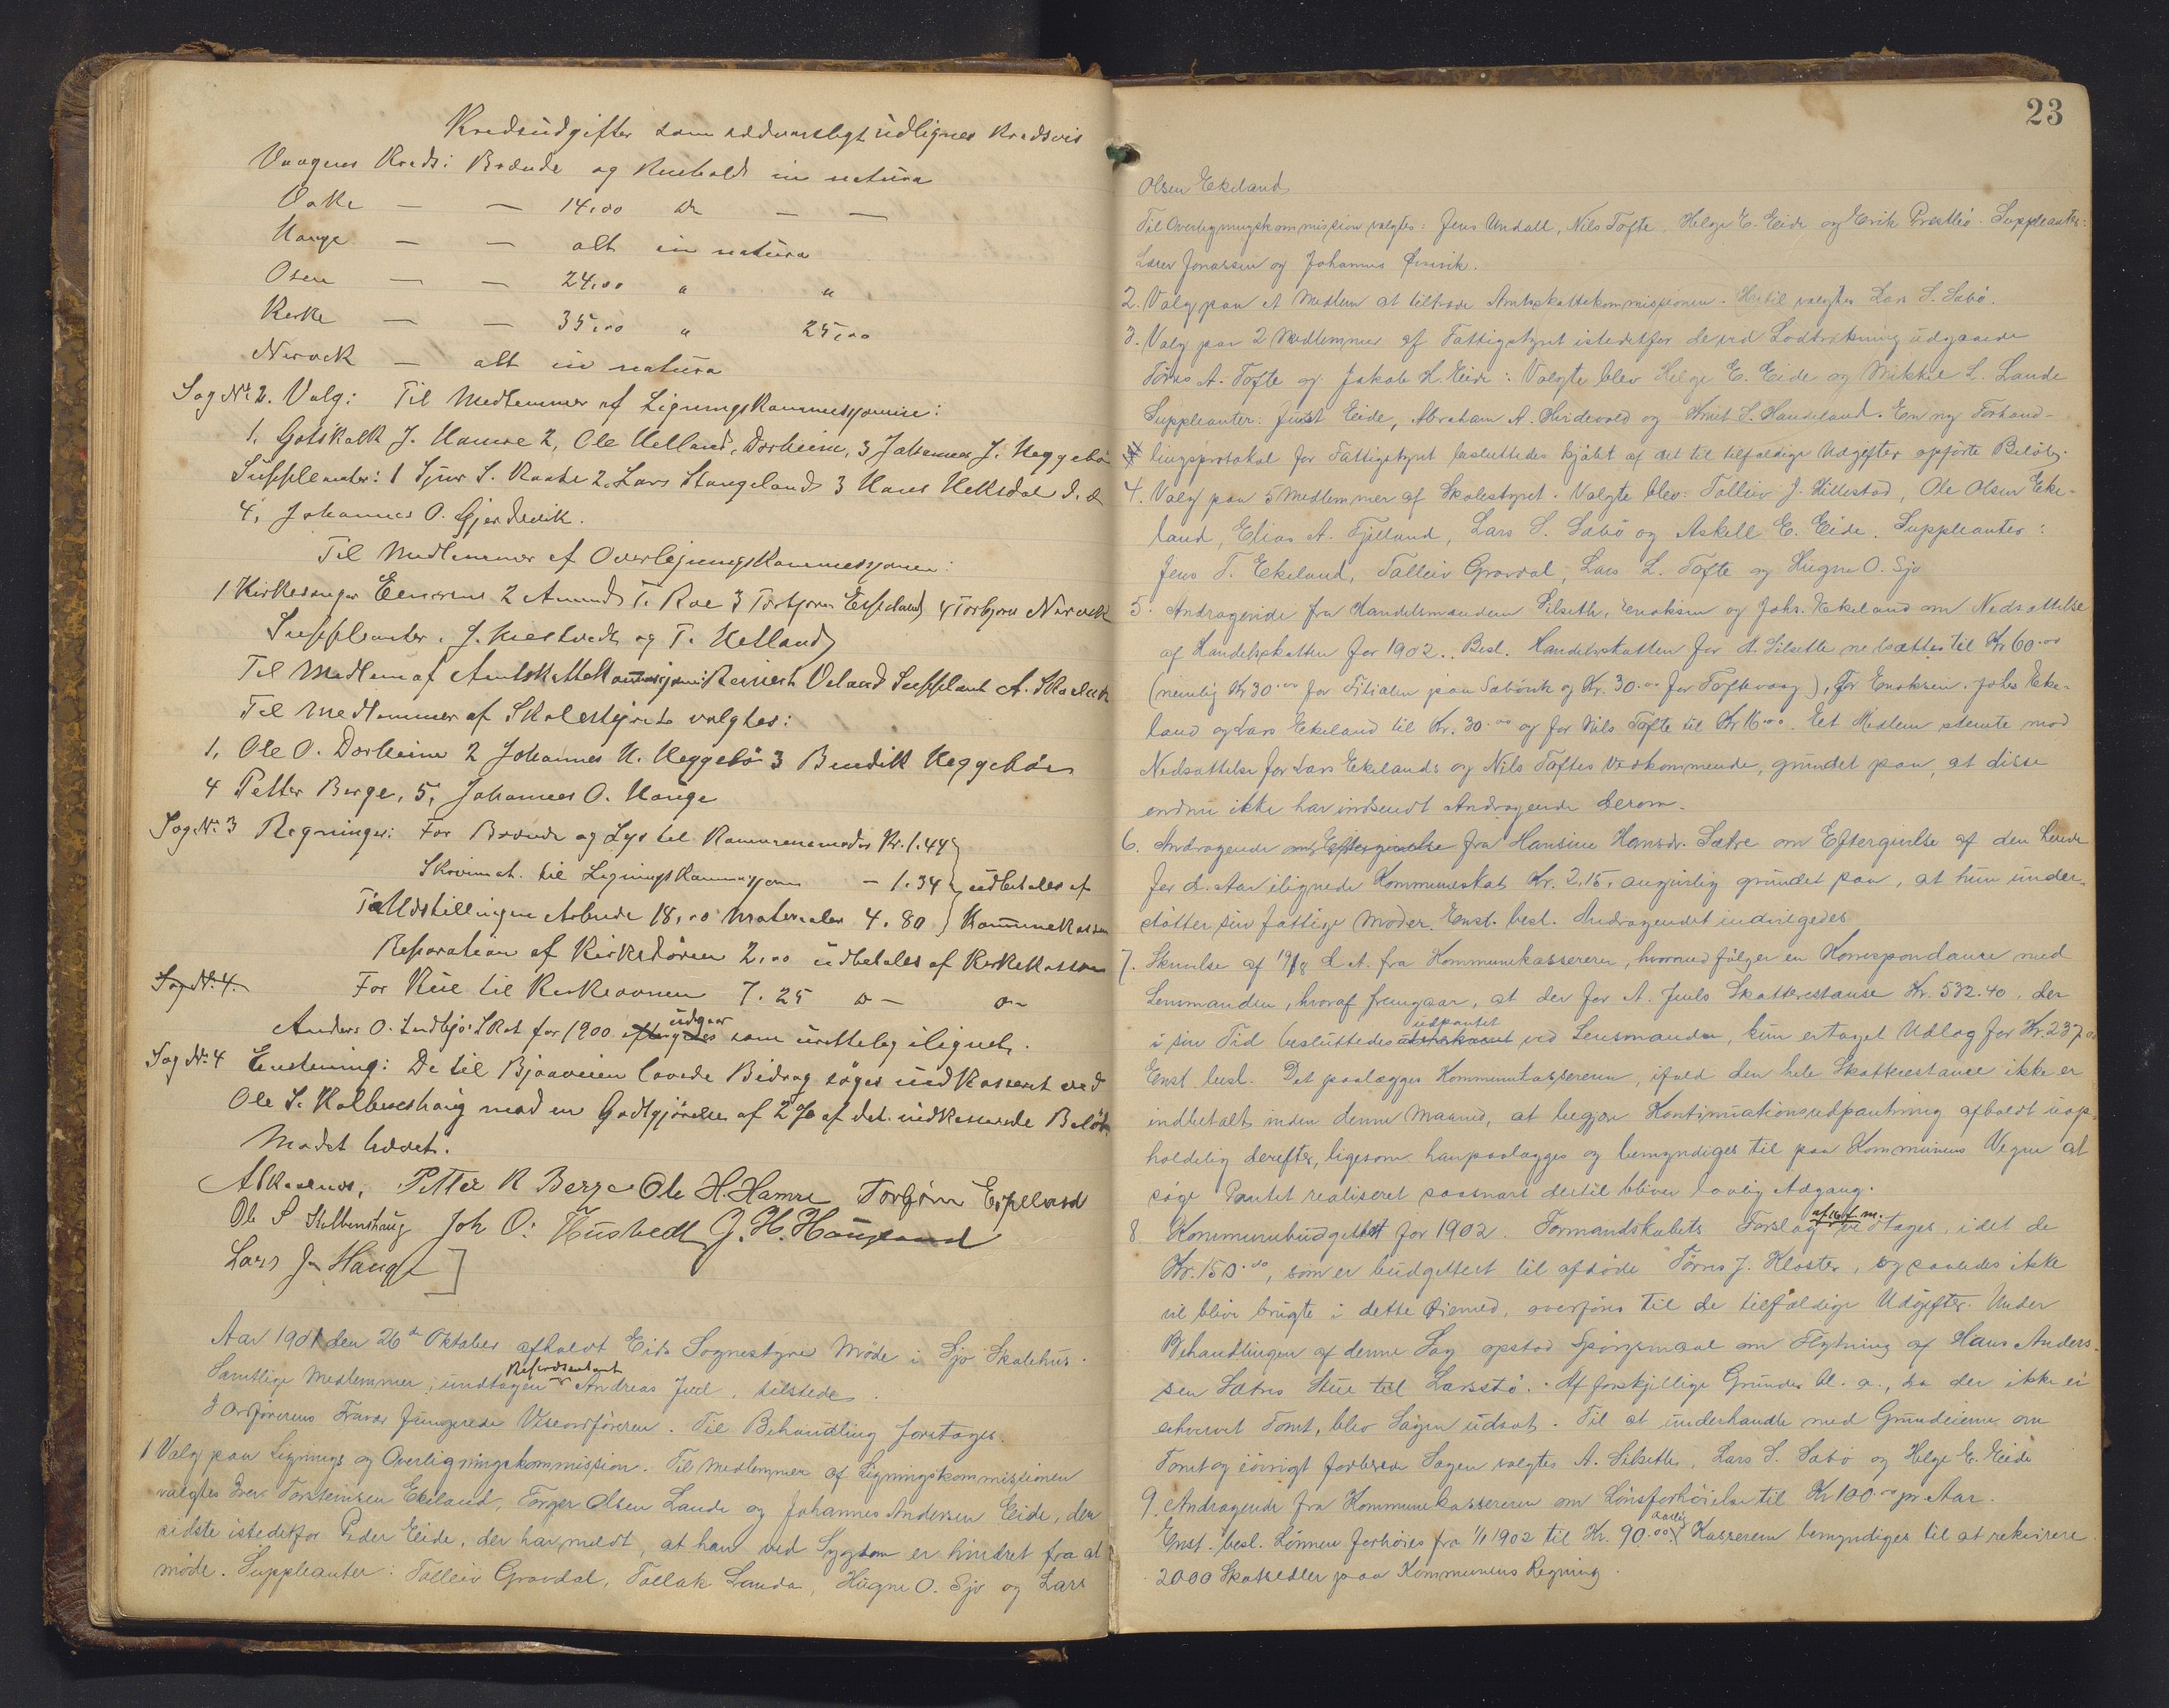 Kredsudgifter som sedvanligt udlignes Kredsvis
Vaagens Kreds: Brænde og Renhold in natura
Vake — — 14,00 Do — —
Hauge — — alt in natura
Osen — — 24,00 " "
Kirke — — 35,00 " 25,00
Nervek — alt in natura
Sag No 2. Valg: Til Medlemmer af Ligningskommissjonen:
1, Gotskalk J. Hamre 2, Ole Helland, Dorheim, 3 Johannes J. Heggebö
Suppleanter: 1 Sjur S. Raake 2. Lars Stangeland 3 Hans
4, Johannes O. Gjerdevik.
Til Medlemmer af Overligningskommissjonen:
1 Kirkesanger Eenerens 2 Amund T. Roe 3 Torbjørn Espeland 4 Torbjørn Nervek
Suppleanter. J. Kustvedt og T. Helland
Til Medlem af Amtskattekommissjonen: Reinert Veland Supplant A. Skaaluren
Til Medlemmer af Skolestyret valgtes:
1, Ole O. Dorheim 2 Johannes H. Heggebö 3 Bendik Heggebö
4 Petter Berge, 5, Johannes O. Hauge
Sag No 3 Regninger: For Brænde og Lys til Kommunemöder Kr. 1.44
Skrivmat. til Ligningskommissjonen — 1.34 udbetales af
Til Udstillingen Arbeide 18,00 Materialer 4.80 Kommunekassen
Reparation af Kirkedören 2,00 udbetales af Kirkekassen
Sag No 4. For Rør til Kirkeovnen 7.25 do — do
Anders O. Lindbjo: Skat for 1900 eftergives udgaar som urettelig ilignet.
Sag No 4 Enstemig: De til Bjoaveien lovede Bidrag söges indkasseret ved
Ole S. Kolbenshaug mod en Godtgjörelse af 2% af det indkasserede Belöb
Mödet hævet.
A Skaaluren, Petter R Berge Ole H. Hamre Torbjørn Espeland
Ole S Kolbenshaug Joh O: Kustvedt G. H. Haugland
Lars J. Hauge
Aar 1901 den 26de Oktober afholdt Eids Sognestyre Möde i Sjo Skolehus.
Samtlige Medlemmer, undtagen Repræsentant Andreas Juul, tilstede.
I Ordförerens Fravær fungerede Viseordföreren. Til Behandling foretoges.
1 Valg paa Lignings og Overligningskommission. Til Medlemmer af Ligningskommissionen
valgtes Iver Torsteinsen Ekeland, Torger Olsen Lande og Johannes Andersen Eide, den
sidste istedetfor Peder Eide, der har meldt, at han ved Sygdom er hindret fra at
möde. Suppleanter: Tolleiv Gravdal, Tollak Landa, Hugne O. Sjo og Lars
23
Olsen Ekeland
Til Overligningskommission valgtes: Jens Undall, Nils Tofte, Helge E. Eide og Erik Prestbö. Suppleanter:
Lærer Jonassen og Johannes Ørevik.
2. Valg paa et Medlem at tiltræde Amtskattekommissionen. Hertil valgtes Lars S. Sæbö.
3. Valg paa 2 Medlemmer af Fattigstyret istedetfor de ved Lodtrækning udgaaede
Törris A. Tofte og Jakob H. Eide: Valgte blev Helge E. Eide og Mikkel L. Lande
Suppleanter: Just Eide, Abraham A. Hardevold og Knut S. Haukeland. En ny Forhand-
lingsprotokol for Fattigstyret besluttedes kjöbt af det til tilfældige Udgifter opförte Belöb.
4. Valg paa 5 Medlemmer af Skolestyret. Valgte blev: Tolleiv J. Hillestad, Ole Olsen Eke-
land, Elias A. Fjelland, Lars S. Sæbö og Askell E. Eide. Suppleanter:
Jens T. Ekeland, Tolleiv Gravdal, Lars L. Tofte og Hugne O. Sjo
5. Andragende fra Handelsmændene Silseth, Enoksen og Johs. Ekeland om Nedsættelse
af Handelsskatten for 1902. Besl. Handelsskatten for A. Silseth nedsættes til Kr 60.00
(nemlig Kr 30.00 for Filialen paa Sæbövik og Kr. 30.00 for Toftevaag), for Enoksen, Johs Eke-
land og Lars Ekeland til Kr. 30.00 og for Nils Tofte til Kr 16.00. Et Medlem stemte mod
Nedsættelse for Lars Ekelands og Nils Toftes Vedkommende, grundet paa, at disse
endnu ikke har indsendt Andragende derom.
6. Andragende om Eftergivelse fra Hansine Hansdr. Sætre om Eftergivelse af den hende
for d. Aar ilignede Kommuneskat Kr. 2,15, angivelig grundet paa, at hun under-
stötter sin fattige Moder. Enst. besl. Andragendet indvilgedes
7. Skrivelse af 19/8 d. A. fra Kommunekassereren, hvormed fölger en Korrespondance med
Lensmanden, hvoraf fremgaar, at der for A. Juuls Skatterestanse Kr. 532.40, der
i sin Tid besluttedes udpantet ved Lensmanden, kun er taget Udlæg for Kr. 237.00
Enst besl. Det paalægges Kommunekassereren, ifald den hele Skatterestance ikke er
indbetalt inden denne Maaned, at begjære Kontinuationsudpantning afholdt uop-
holdelig derefter, ligesom han paalægges og bemyndiges til paa Kommunens Vegne at
söge Pantet realiseret saasnart dertil bliver lovlig Adgang.
8. Kommunebudgettet for 1902. Formandskabets Forslag vedtages, idet de
Kr. 150.00, som er budgetteret til afdöde Törris J. Kloster, og saaledes ikke
vil blive brugte i dette Öiemed, overföres til de tilfældige Udgifter. Under
Behandlingen af denne Sag opstod Spörgsmaal om Flytning af Hans Anders-
sen Sætres Stue til Larsstö. Af forskjellige Grunde bl. a., da der ikke er
erhvervet Tomt, blev Sagen udsat. Til at underhandle med Grundeierne om
Tomt og iövrigt forberede Sagen valgtes A. Silseth, Lars S. Sæbö og Helge E. Eide
9. Andragende fra Kommunekassereren om Lönsforhöielse til Kr 100.00 pr Aar.
Enst. besl. Lönnen forhöies fra 1/1 1902 til Kr. 90.00 aarlig. Kassereren bemyndiges til at rekvirere
2000 Skatsedler paa Kommunens Regning.